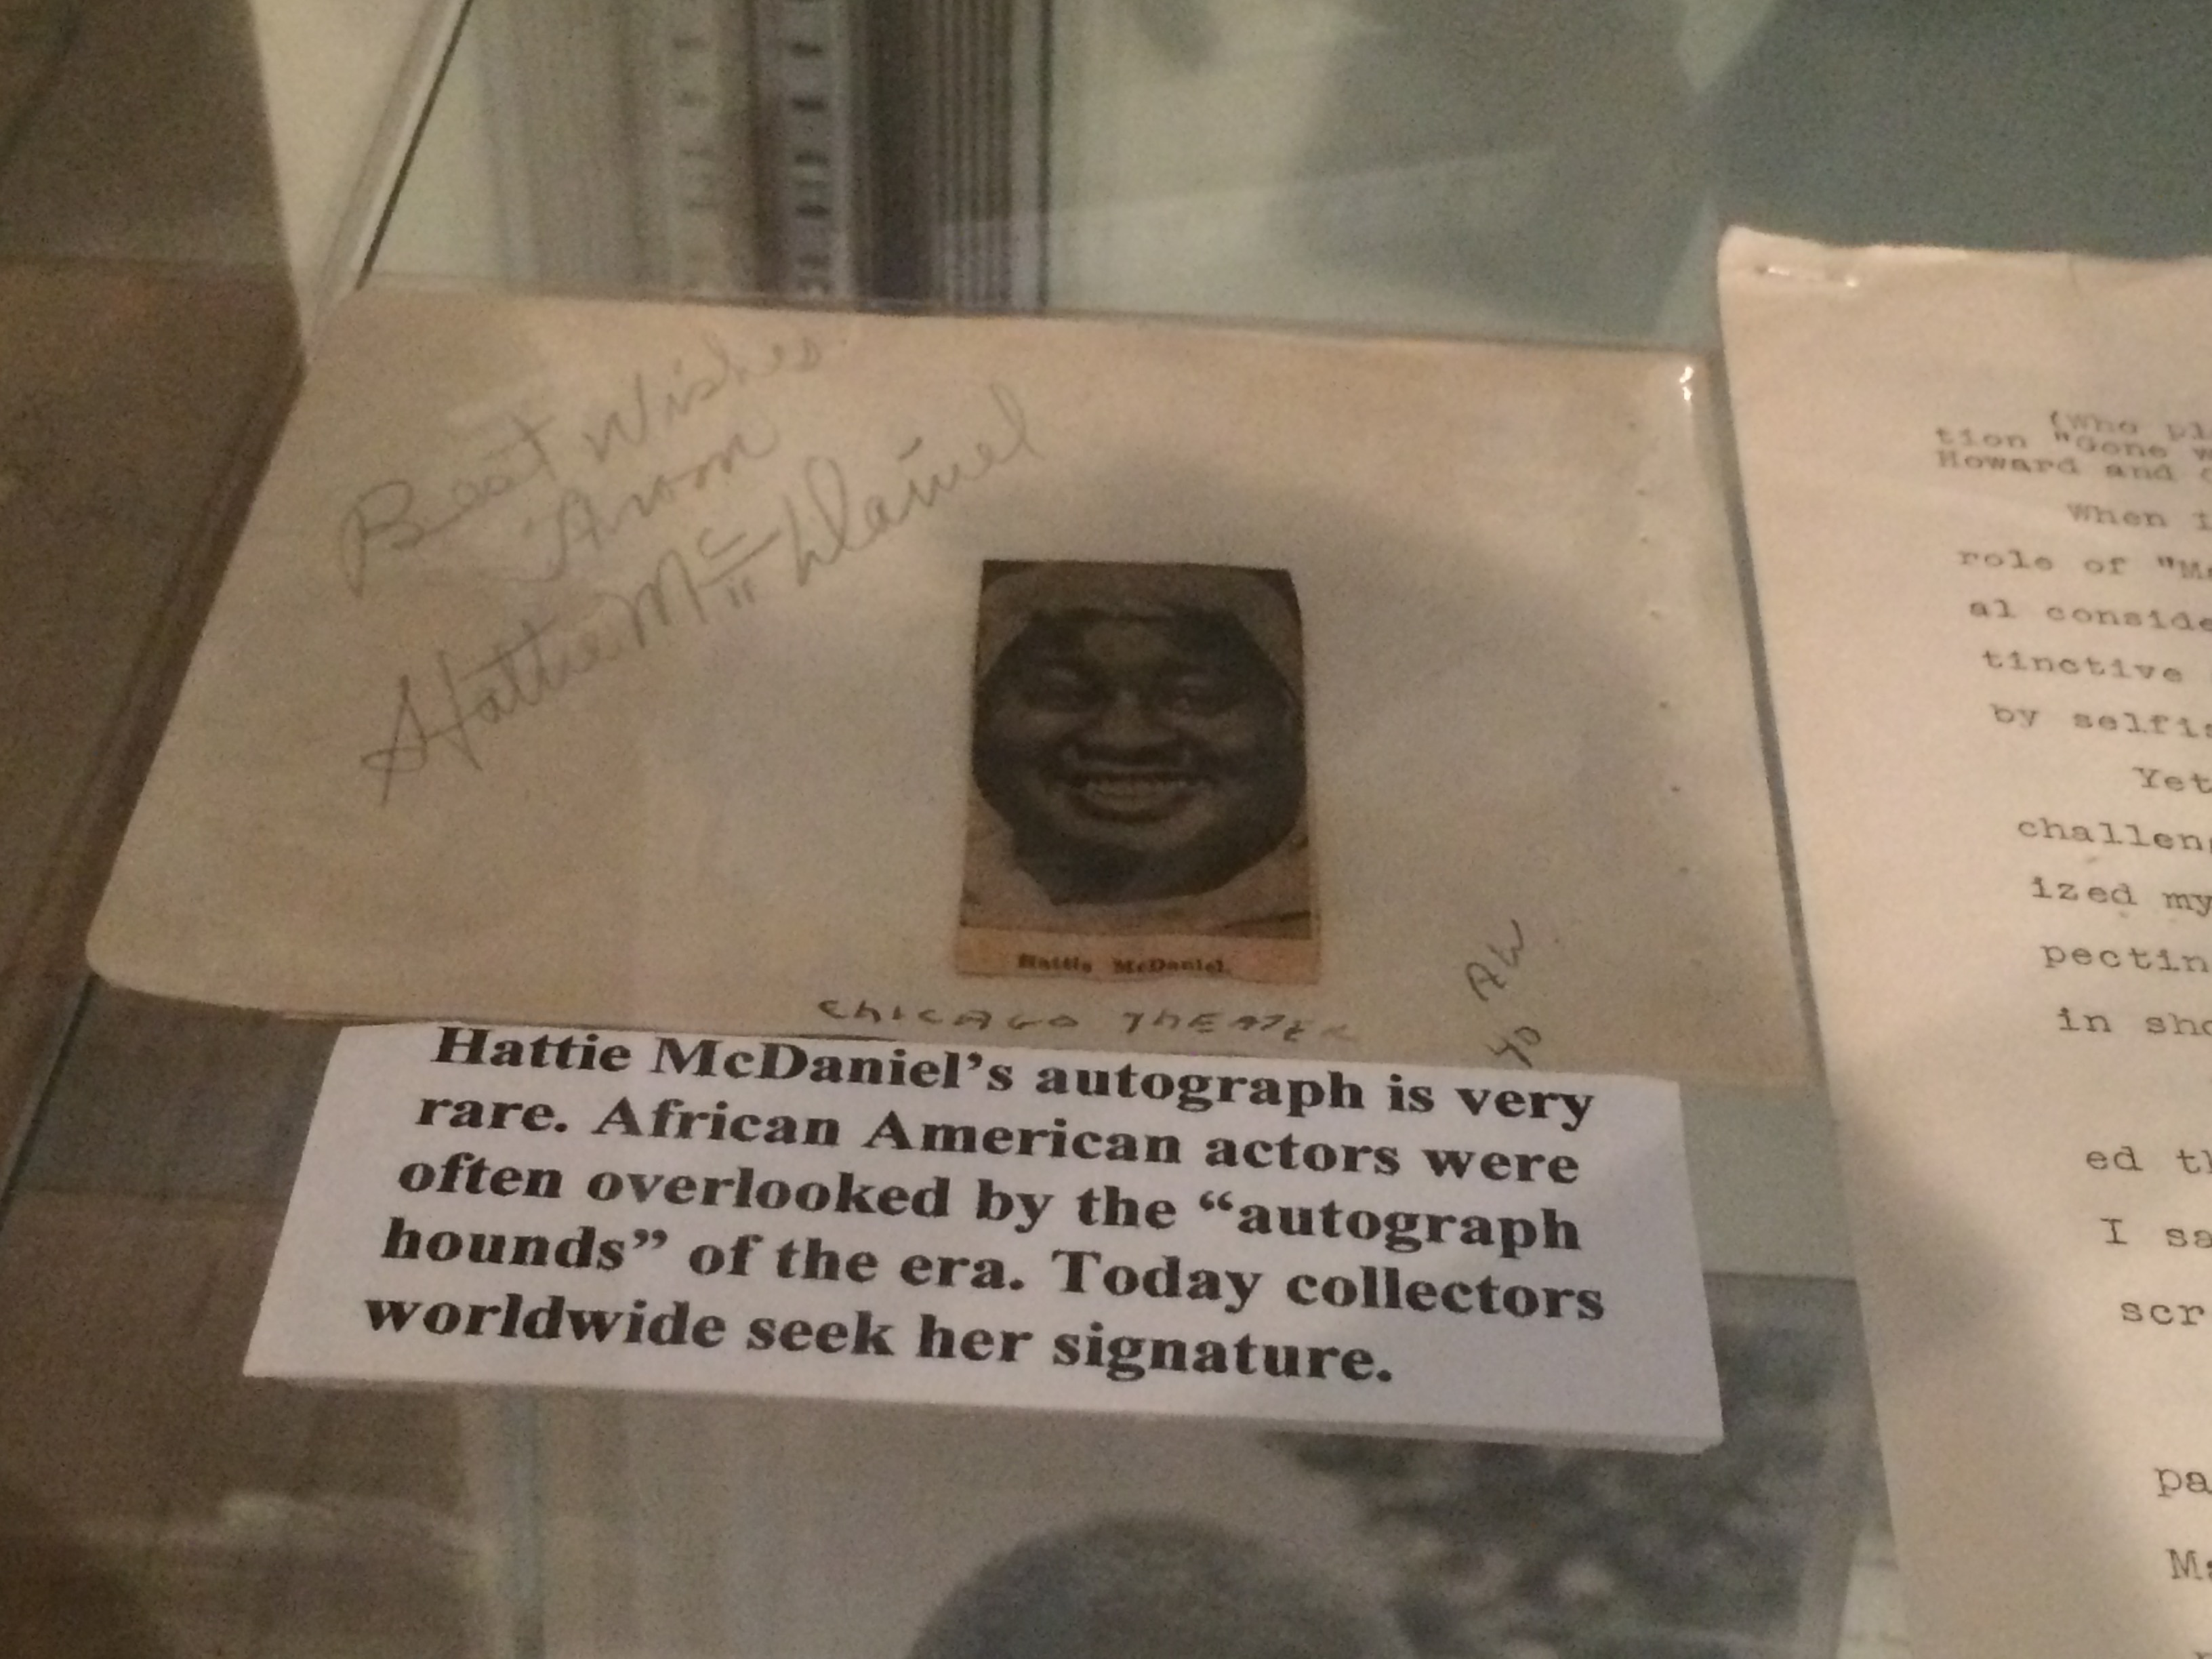 Best Wishes
From
Hattie McDaniel
Hattie McDaniel.
CHICAGO THEATER
40
Hattie McDaniel's autograph is very
rare. African American actors were
often overlooked by the “autograph
hounds” of the era. Today collectors
worldwide seek her signature.
(Who pl
tion "Gone w
Howard and
When i
role of "Ma
al conside
tinctive
by selfis
Yet
challen
ized my
pectin
in sho
ed th
I sa
scr
pa
Ma